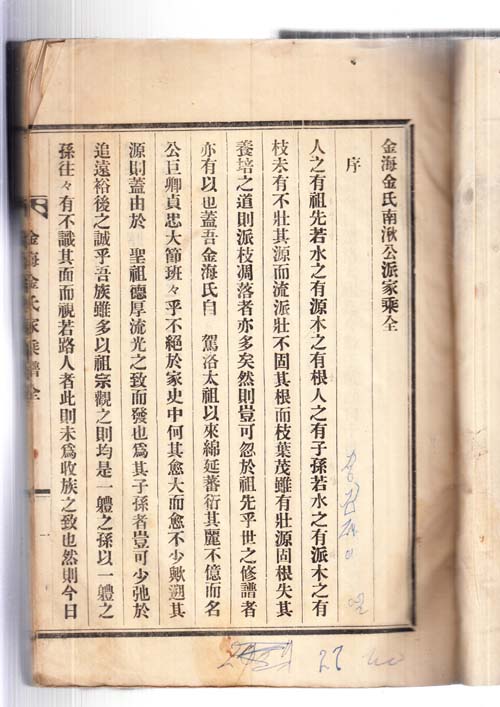 金海金氏南湫公派家乘全
序
人之有祖先若水之有源木之有根人之有子孫若水之有派木之有
枝未有不壯其源而流派壯不固其根而枝葉茂雖有壯源固根失其
養培之道則派枝凋落者亦多矣然則豈可忽於祖先乎世之修譜者
亦有以也蓋吾金海氏自 駕洛太祖以來綿延蕃衍其麗不億而名
公巨卿貞忠大節班々乎不絕於家史中何其愈大而愈不少歟遡其
源則蓋由於 聖祖德厚流光之致而發也爲其子孫者豈可少弛於
追遠裕後之誠乎吾族雖多以祖宗觀之則均是一軆之孫以一軆之
孫往々有不識其面而視若路人者此則未爲收族之致也然則今日
金海金氏家乘譜全
一
27